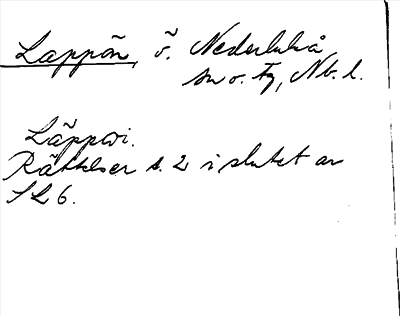 Lappön, ö. Nederluleå
sn o. Fg, Nb. l.
Läppoi.
Rättelser s. 2 i slutet av
SL 6.